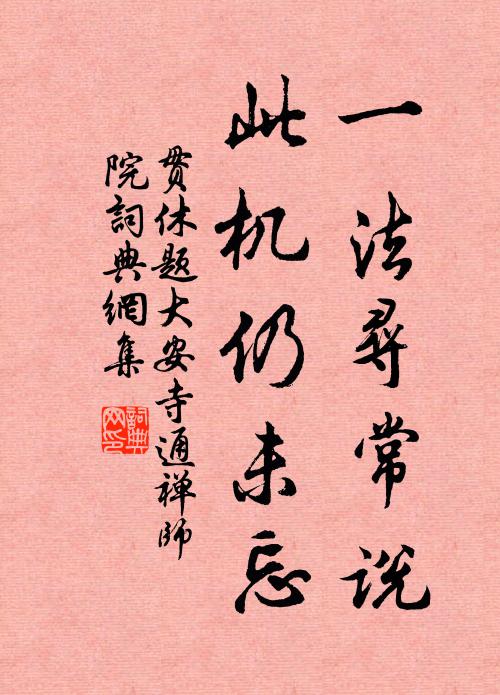 一法尋常说
此机仍未忘
贯休题大安寺通禅师
院詞典網集
詞典
网印